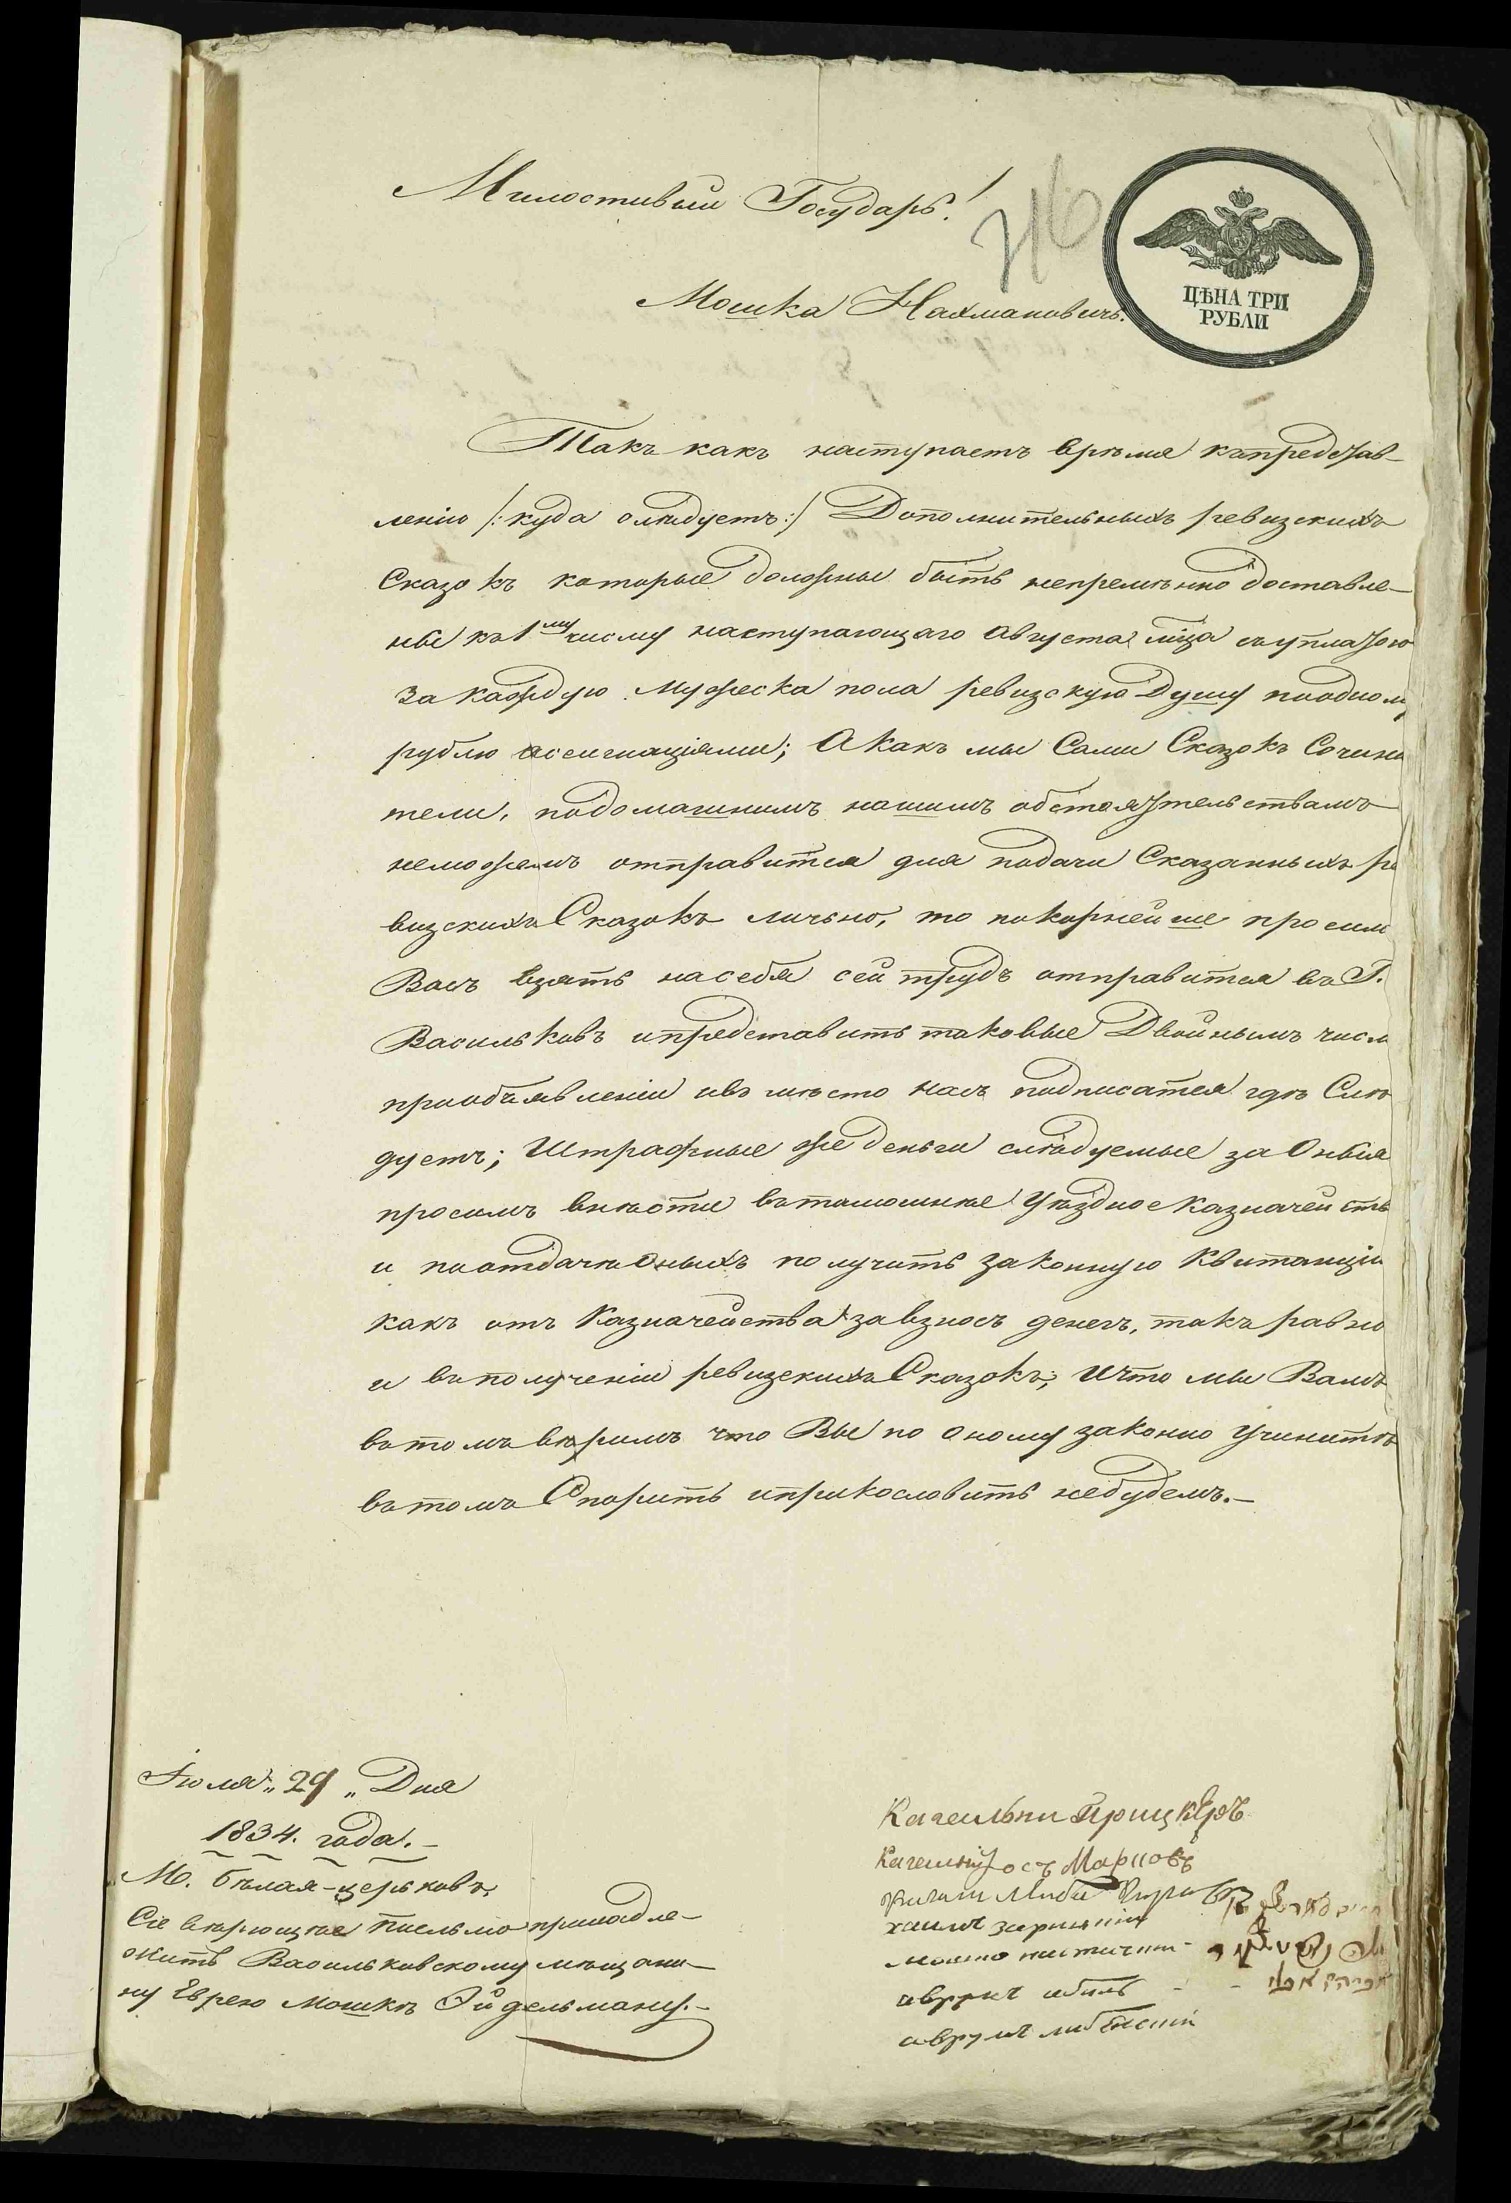 Милостивый Государь!
46
ЦѢНА ТРИ
РУБЛИ
Мошка Нахмановичъ.
Такъ какъ наступаетъ время къ представ-
ленію /: куда слѣдуетъ :/ Дополнительныхъ ревизскихъ
Сказокъ которые должны быть непремѣнно доставле-
ны къ 1му числу наступающаго Августа мца съ уплатою
За каждую мужеска пола ревизскую Душу по одному
рублю ассигнаціями; А какъ мы Сами Сказокъ Сочини
тели, по домашнимъ нашимъ обстоятельствамъ
неможемъ отправится для подачи Сказанныхъ ре
визскихъ Сказокъ лично, то покорнейше просим
Васъ взять на себя сей трудъ отправится въ Г.
Васильковъ и представить таковые Двойнымъ числ
при объявленіи и вмѣсто насъ подписатся гдѣ Слѣ
дуетъ; Штрафные же деньги слѣдуемые за Оныя
просимъ внѣсти въ тамошнее Уѣздное Казначейств
и по отдачѣ Оныхъ получить законную Квитанцію
какъ отъ Казначейства за взносъ денегъ, такъ равно
и въ полученіи ревизскихъ Сказокъ; И что мы Вамъ
въ томъ вѣримъ что Вы по оному законно учините
въ томъ Спорить и прикословить небудемъ.-
Іюля „ 29 „ Дня
1834. года.-
М. Бѣлая-церковь
Сіе вѣрющее писмо принадле-
житъ Васильковскому мѣщани-
ну Еврею Мошкѣ Эйдельману.-
Кагельни Прицкеръ
Кагелный ось Марновъ
хаимъ зарицкій
мошко
аврумъ
аврумъ